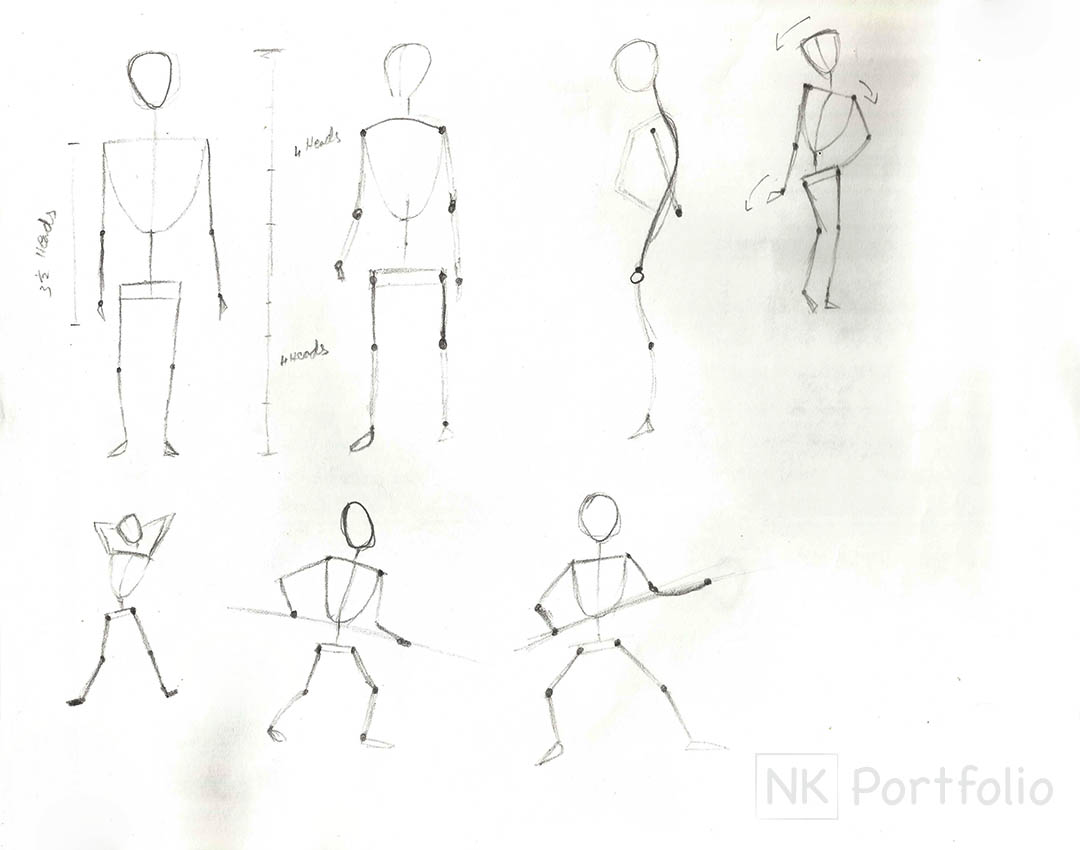 4 Heads
3 1/2 Heads
4 Heads
NK Portfolio